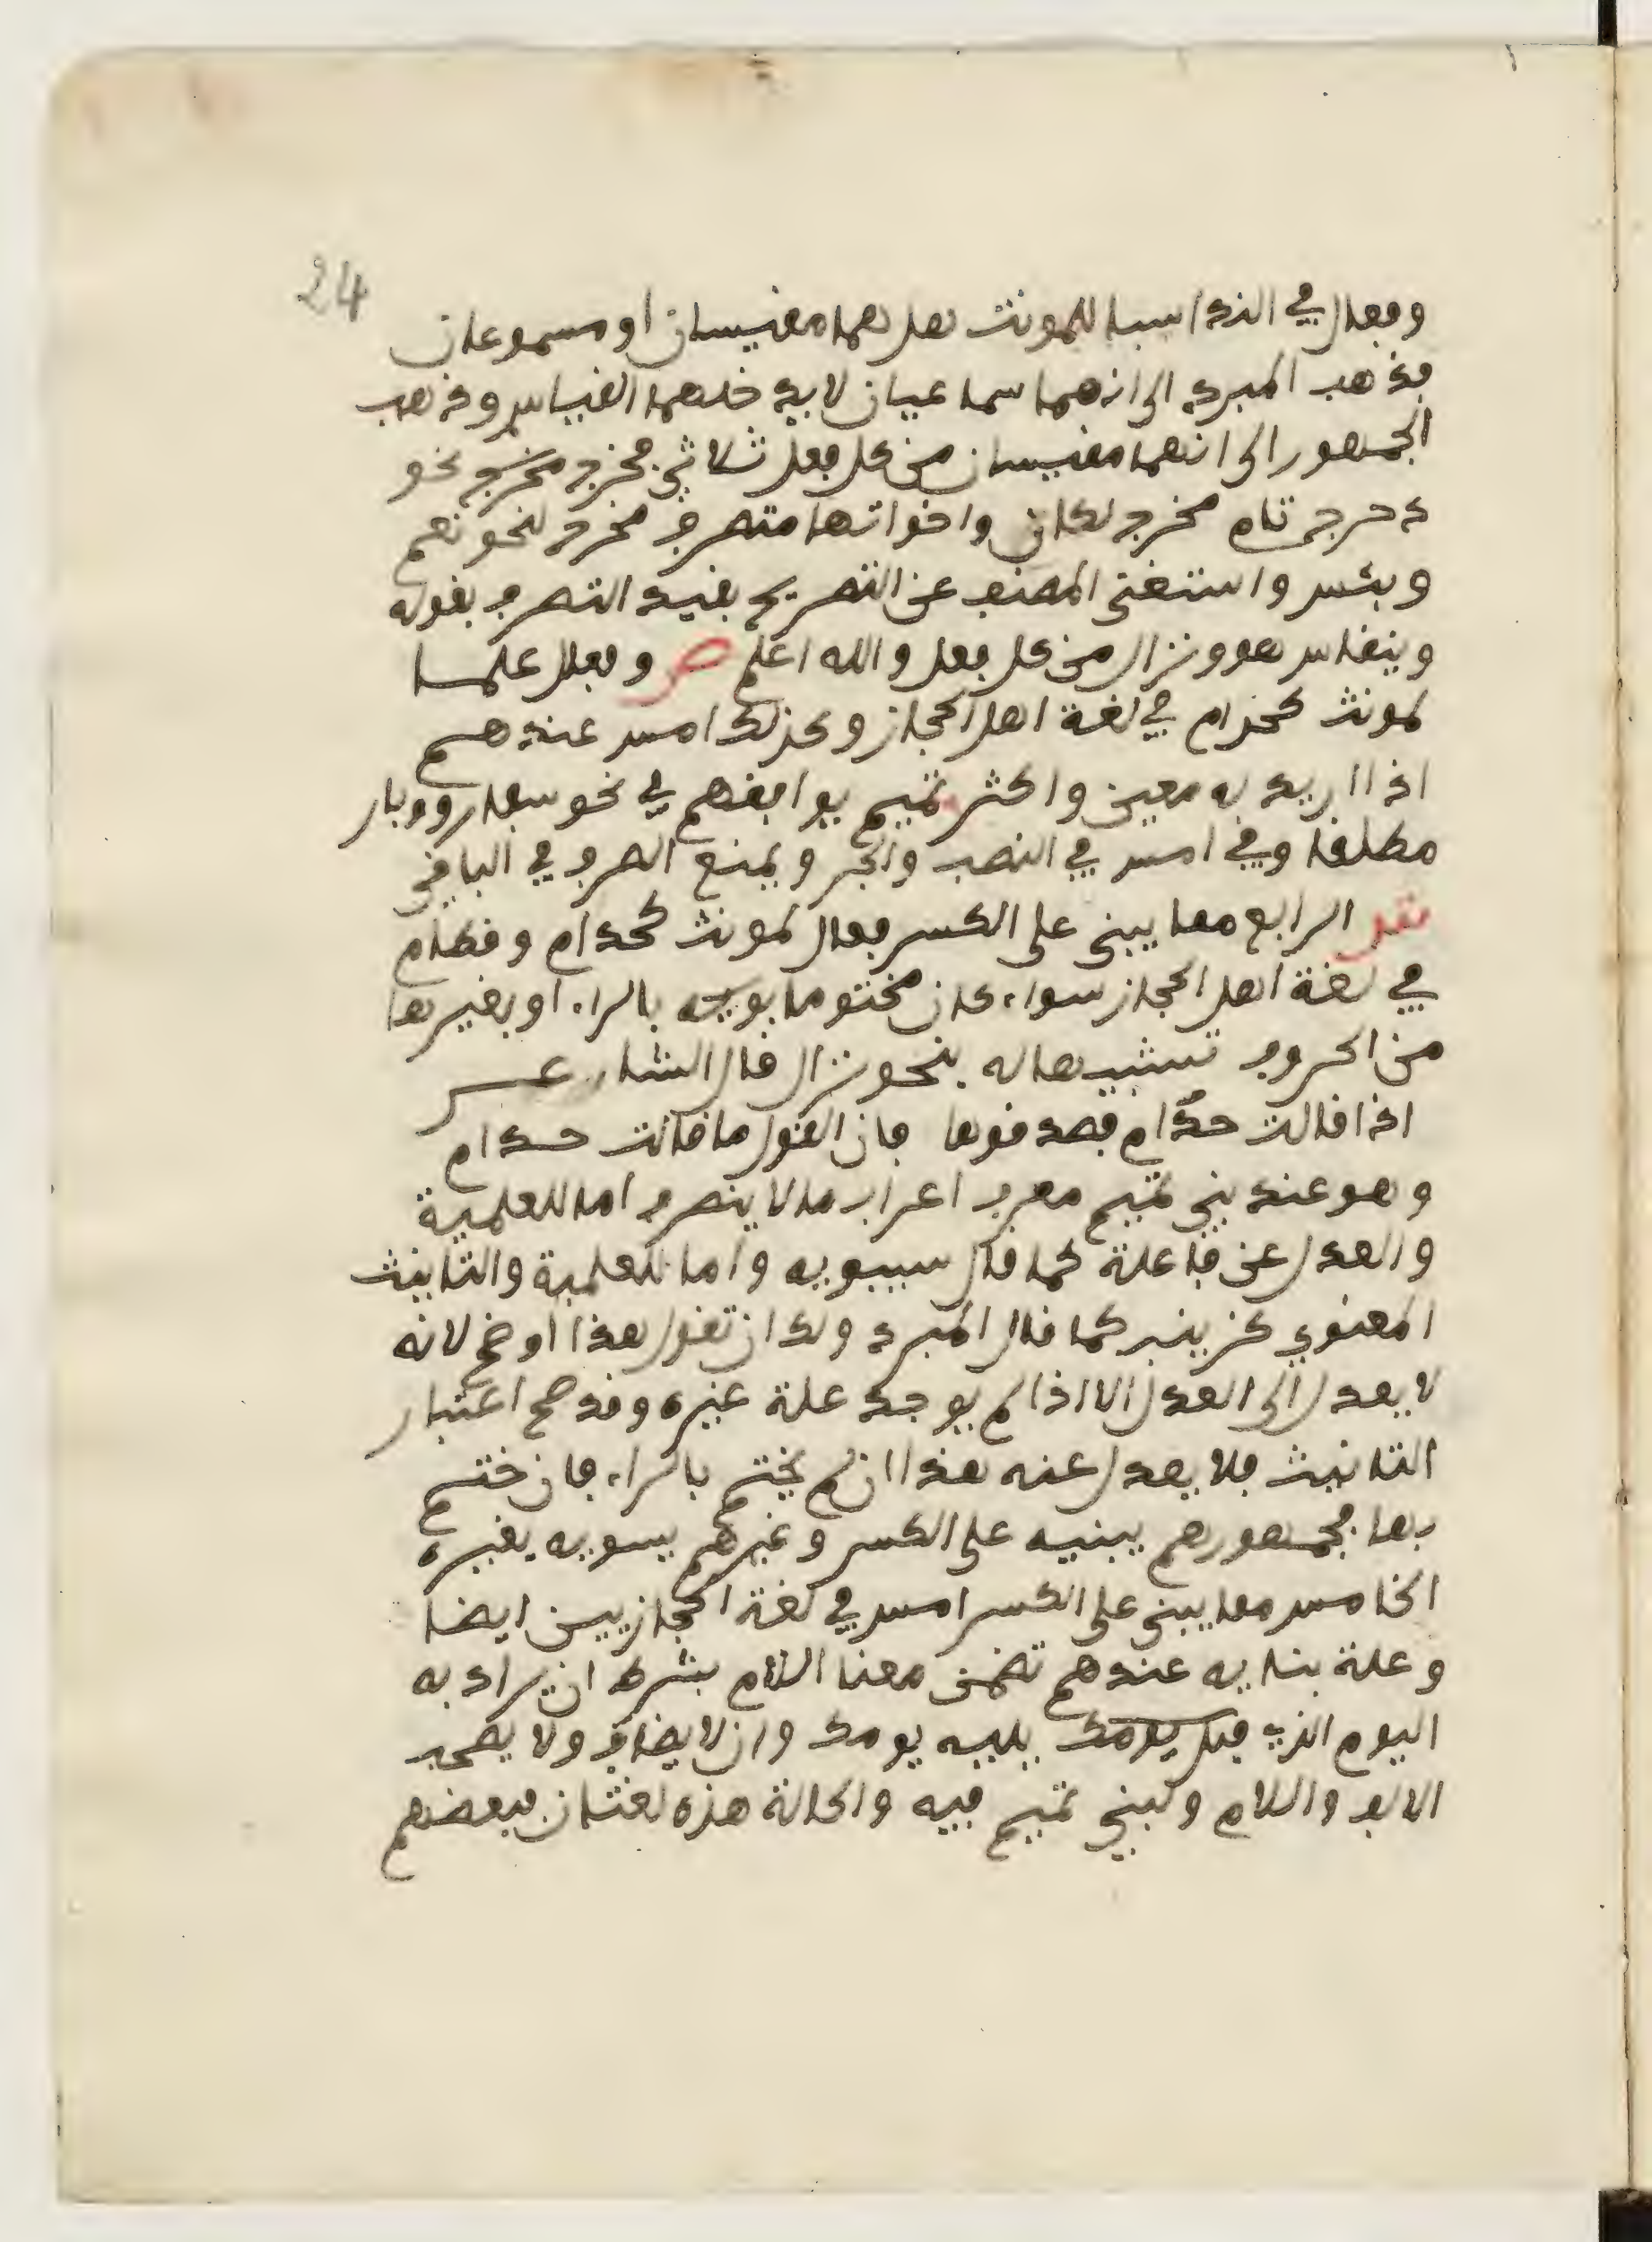 24
وفعال في الندا سبا للمونث هل هما مقيسان او مسموعان
فذهب المبرد الى انهما سماعيان لا يدخلهما القياس وذهب
الجمهور الى انهما مقيسان من كل فعل ثلاثي مخرج نحو
دحرج تام مخرج لكان واخواتها متصرف مخرج لنحو نعم
وبئس واستغنى المصنف عن التصريح بقيد التصرف بقوله
وينقاس هو ونزال من كل فعل والله اعلم ص وفعال علما
لمونث كحذام في لغة اهل الحجاز وكذلك امس عندهم
اذا اريد به معين واكثر تميم يوافقهم في نحو سفار ووبار
مطلقا وفي امس في النصب والجر ويمنع الصرف في الباقي
الرابع مما يبنى على الكسر فعال لمونث كحدام وقطام
في لغة اهل الحجاز سواء كان مختوما بالراء او بغيرها
من الحروف تشبيها له بنحو نزال قال الشاعر
اذا قالت حدام فصدقوها فان القول ما قالت حدام
وهو عند بني تميم معرب اعراب ما لا ينصرف اما للعلمية
والعدل عن فاعلة كما قال سيبويه واما للعلمية والتانيث
المعنوي كزينب كما قال المبرد ولك ان تقول هذا اوضح لانه
لا يعدل الى العدل الا اذا لم يوجد علة غيره وقد صح اعتبار
التانيث فلا يعدل عنه هذا ان لم يختم بالراء فان ختم
بها فجمهورهم يبنيه على الكسر وغيرهم يسويه بغيره
الخامس مما يبنى على الكسر امس في لغة الحجازيين ايضا
وعلة بنايه عندهم تضمن معنا اللام بشرط ان يراد به
اليوم الذي يليه يومك وان لا يضاف ولا يصحب
الالف واللام ولبني تميم فيه والحالة هذه لغتان فبعضهم